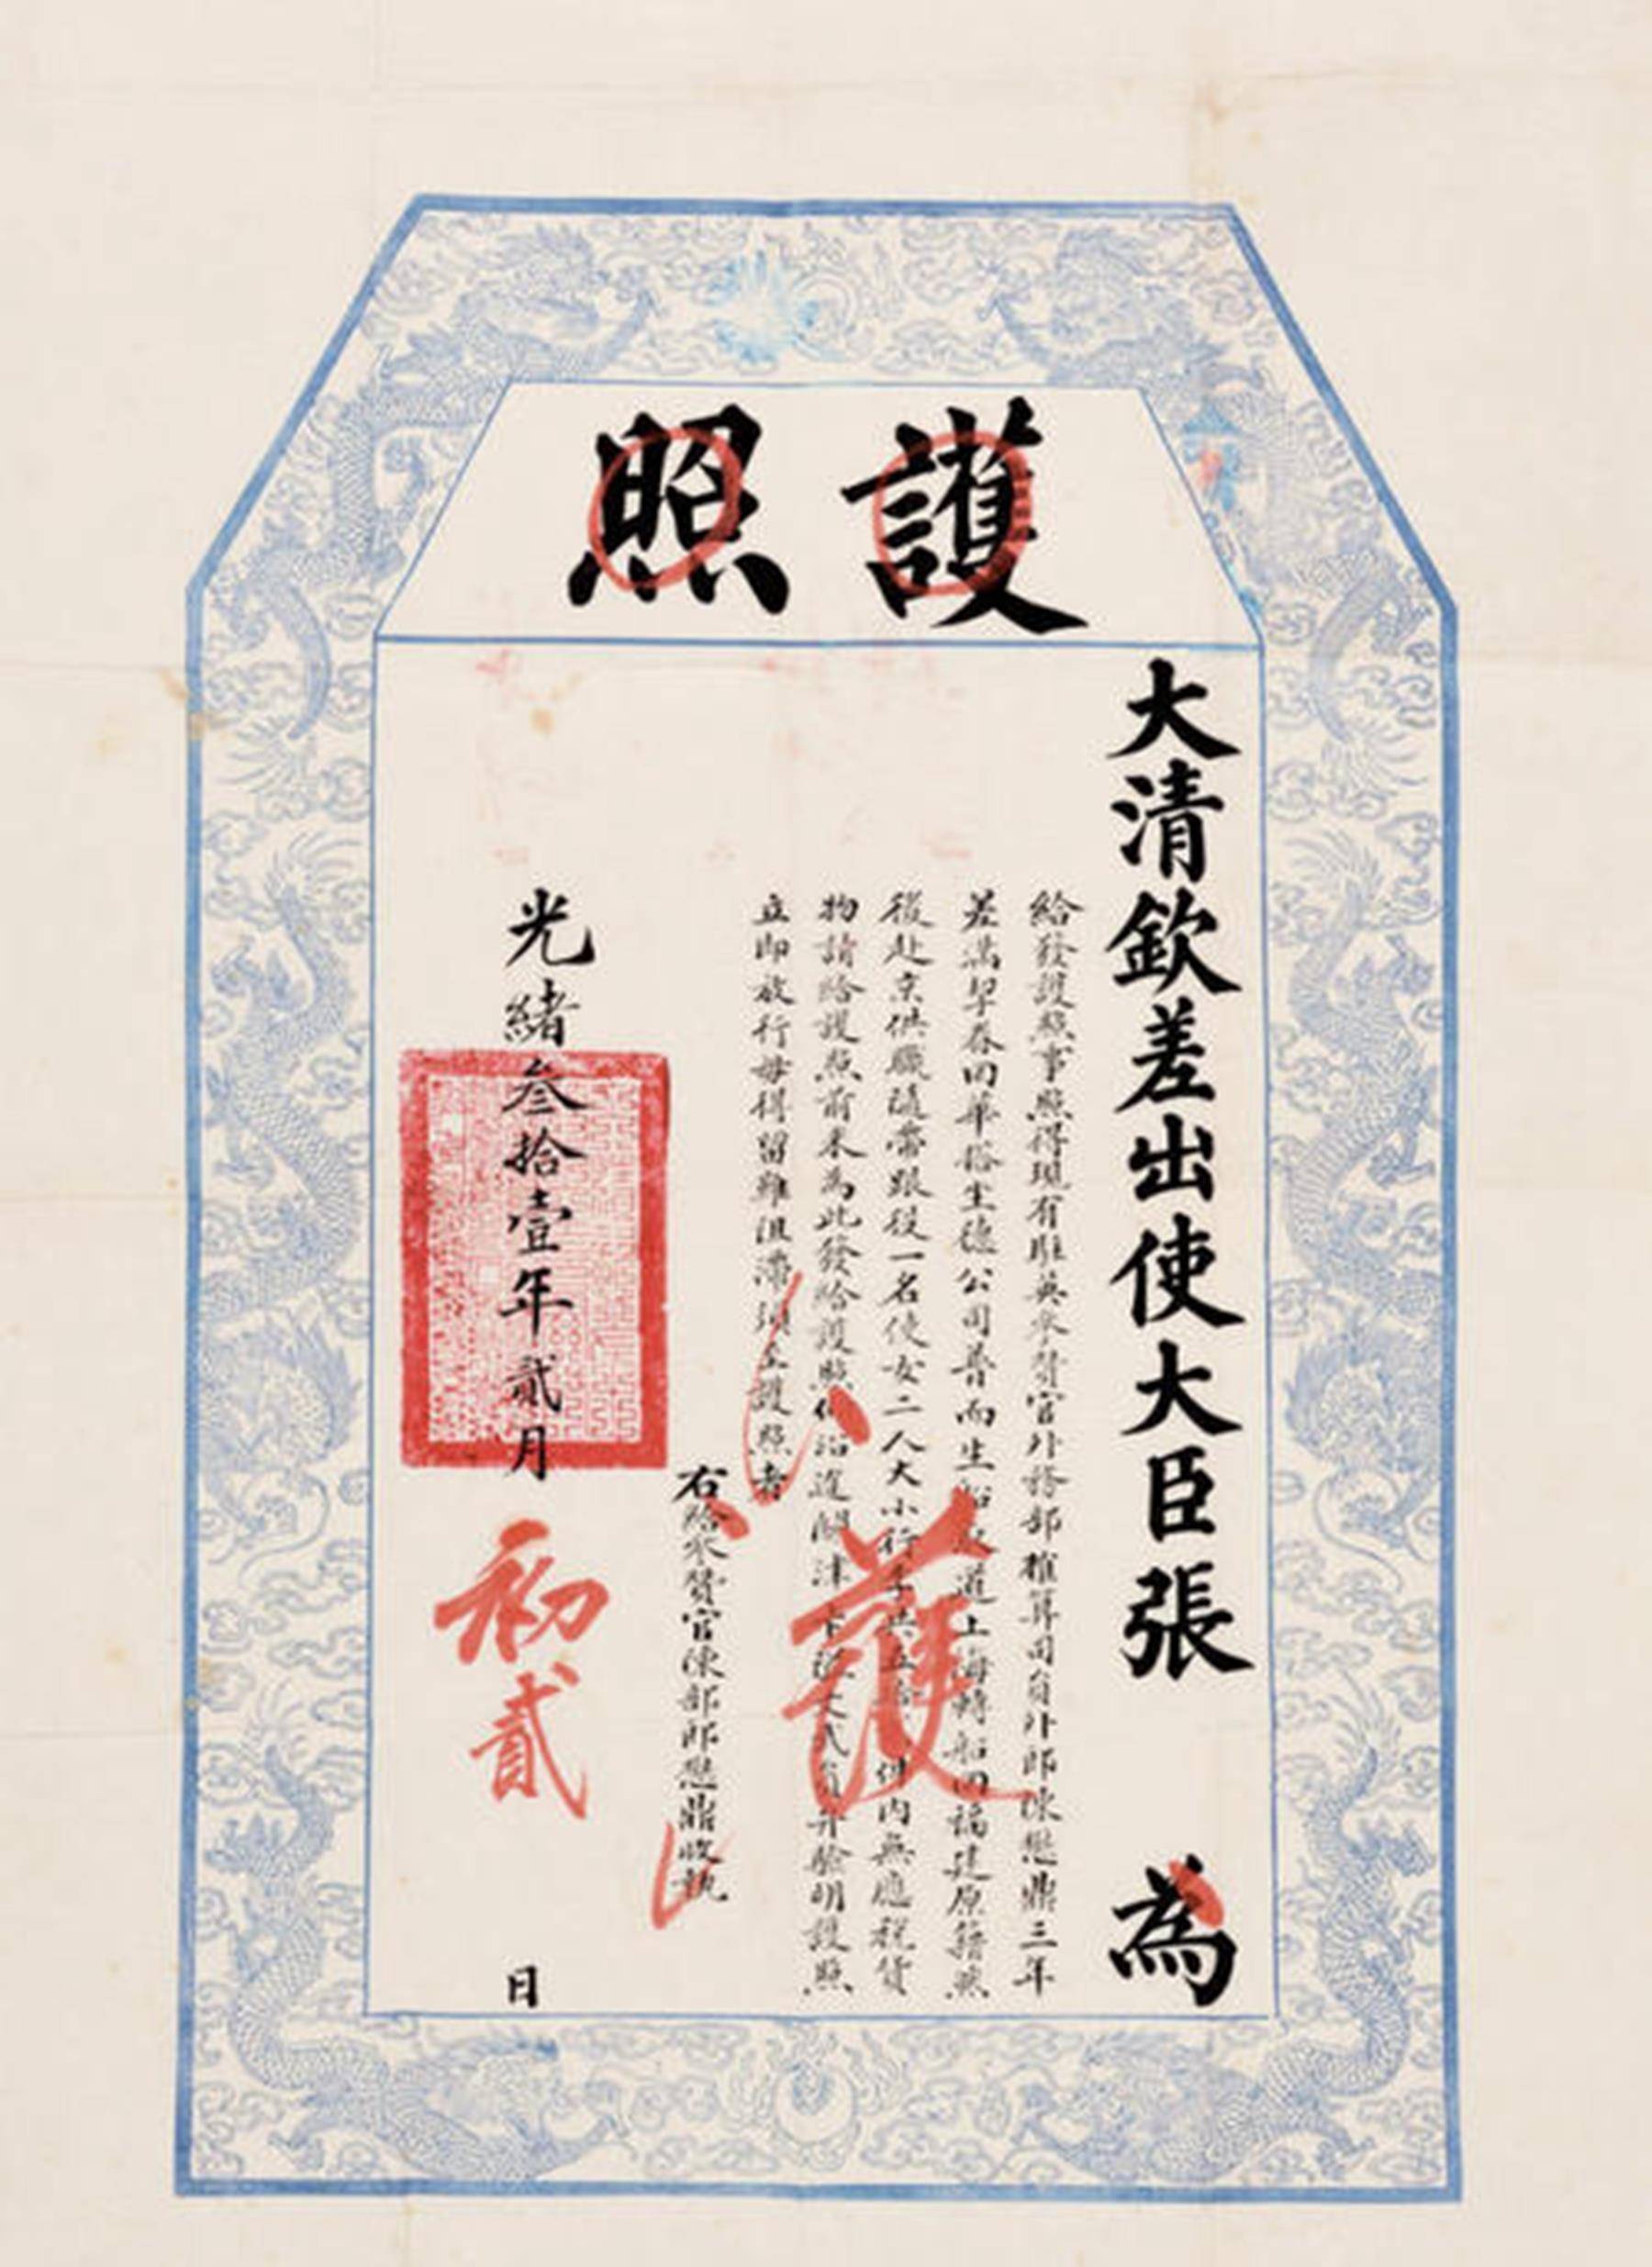 護照
大清欽差出使大臣張 為
給發護照事照得現有駐英參贊官外務部榷算司員外郎陳懋鼎三年
差滿挈眷回華搭坐德公司普而生船取道上海轉船回福建原籍然
後赴京供職隨帶跟役一名使女二人大小行李共五 件內無應稅貨
物請給護照前來為此發給護照 沿途關津 文武員弁驗明護照
立即放行毋得留難阻滯須至護照者
右給參贊官陳部郎懋鼎收執
光緒叁拾壹年貳月初貳日
護